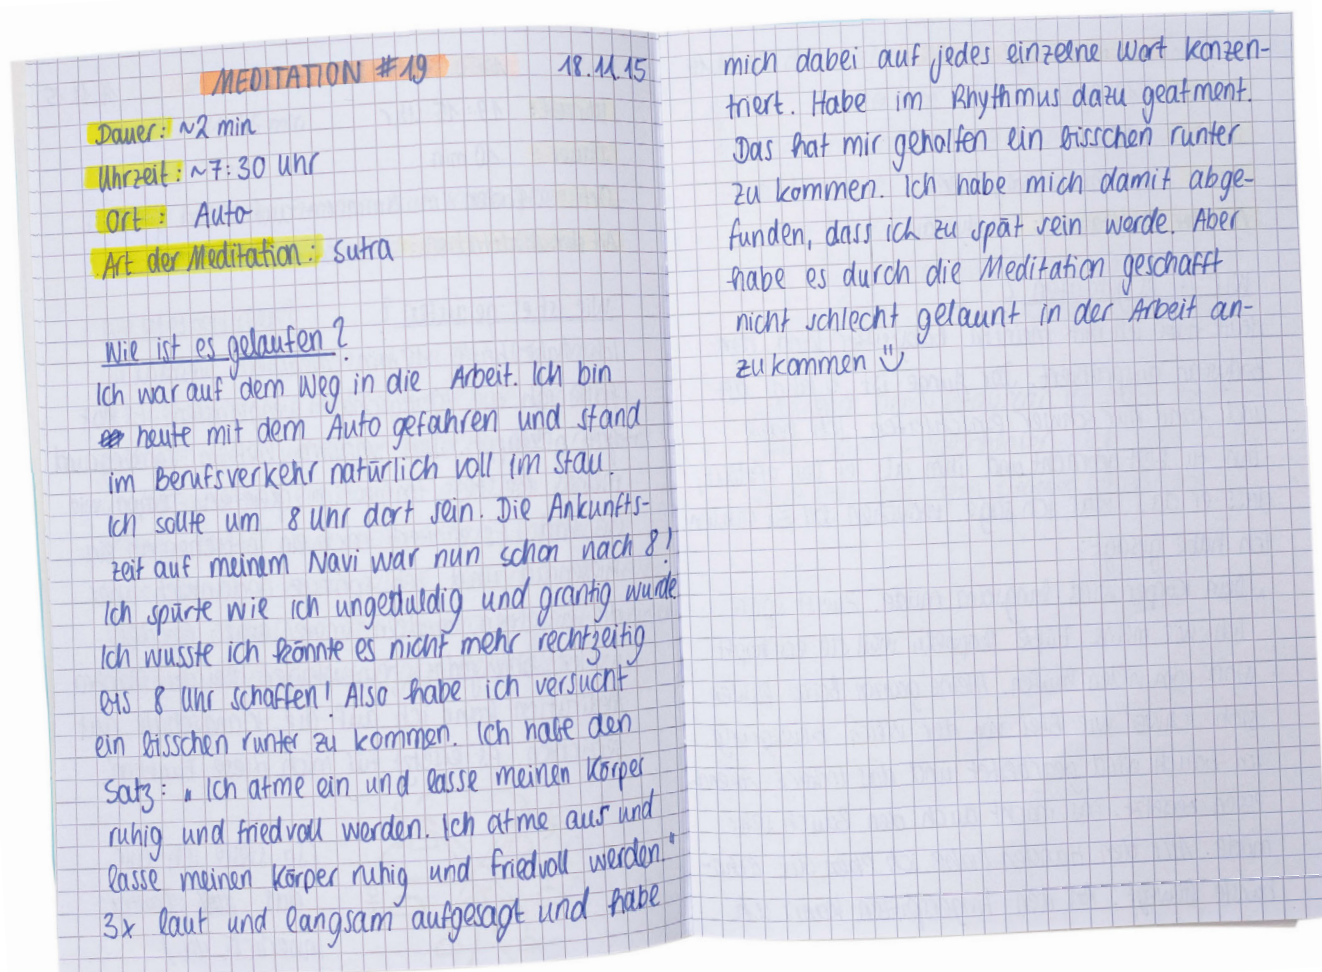 MEDITATION #19 18.11.15
Dauer: ~2 min
Uhrzeit: ~7:30 Uhr
Ort: Auto
Art der Meditation: Sutra
Wie ist es gelaufen?
Ich war auf dem Weg in die Arbeit. Ich bin
heute mit dem Auto gefahren und stand
im Berufsverkehr natürlich voll im Stau.
Ich sollte um 8 Uhr dort sein. Die Ankunfts-
zeit auf meinem Navi war nun schon nach 8!
Ich spürte wie ich ungeduldig und grantig wurde
Ich wusste ich könnte es nicht mehr rechtzeitig
bis 8 Uhr schaffen! Also habe ich versucht
ein bisschen runter zu kommen. Ich habe den
Satz: „Ich atme ein und lasse meinen Körper
ruhig und friedvoll werden. Ich atme aus und
lasse meinen Körper ruhig und friedvoll werden."
3x laut und langsam aufgesagt und habe
mich dabei auf jedes einzelne Wort konzen-
triert. Habe im Rhythmus dazu geatment.
Das hat mir geholfen ein bisschen runter
zu kommen. Ich habe mich damit abge-
funden, dass ich zu spät sein werde. Aber
habe es durch die Meditation geschafft
nicht schlecht gelaunt in der Arbeit an-
zukommen ☺